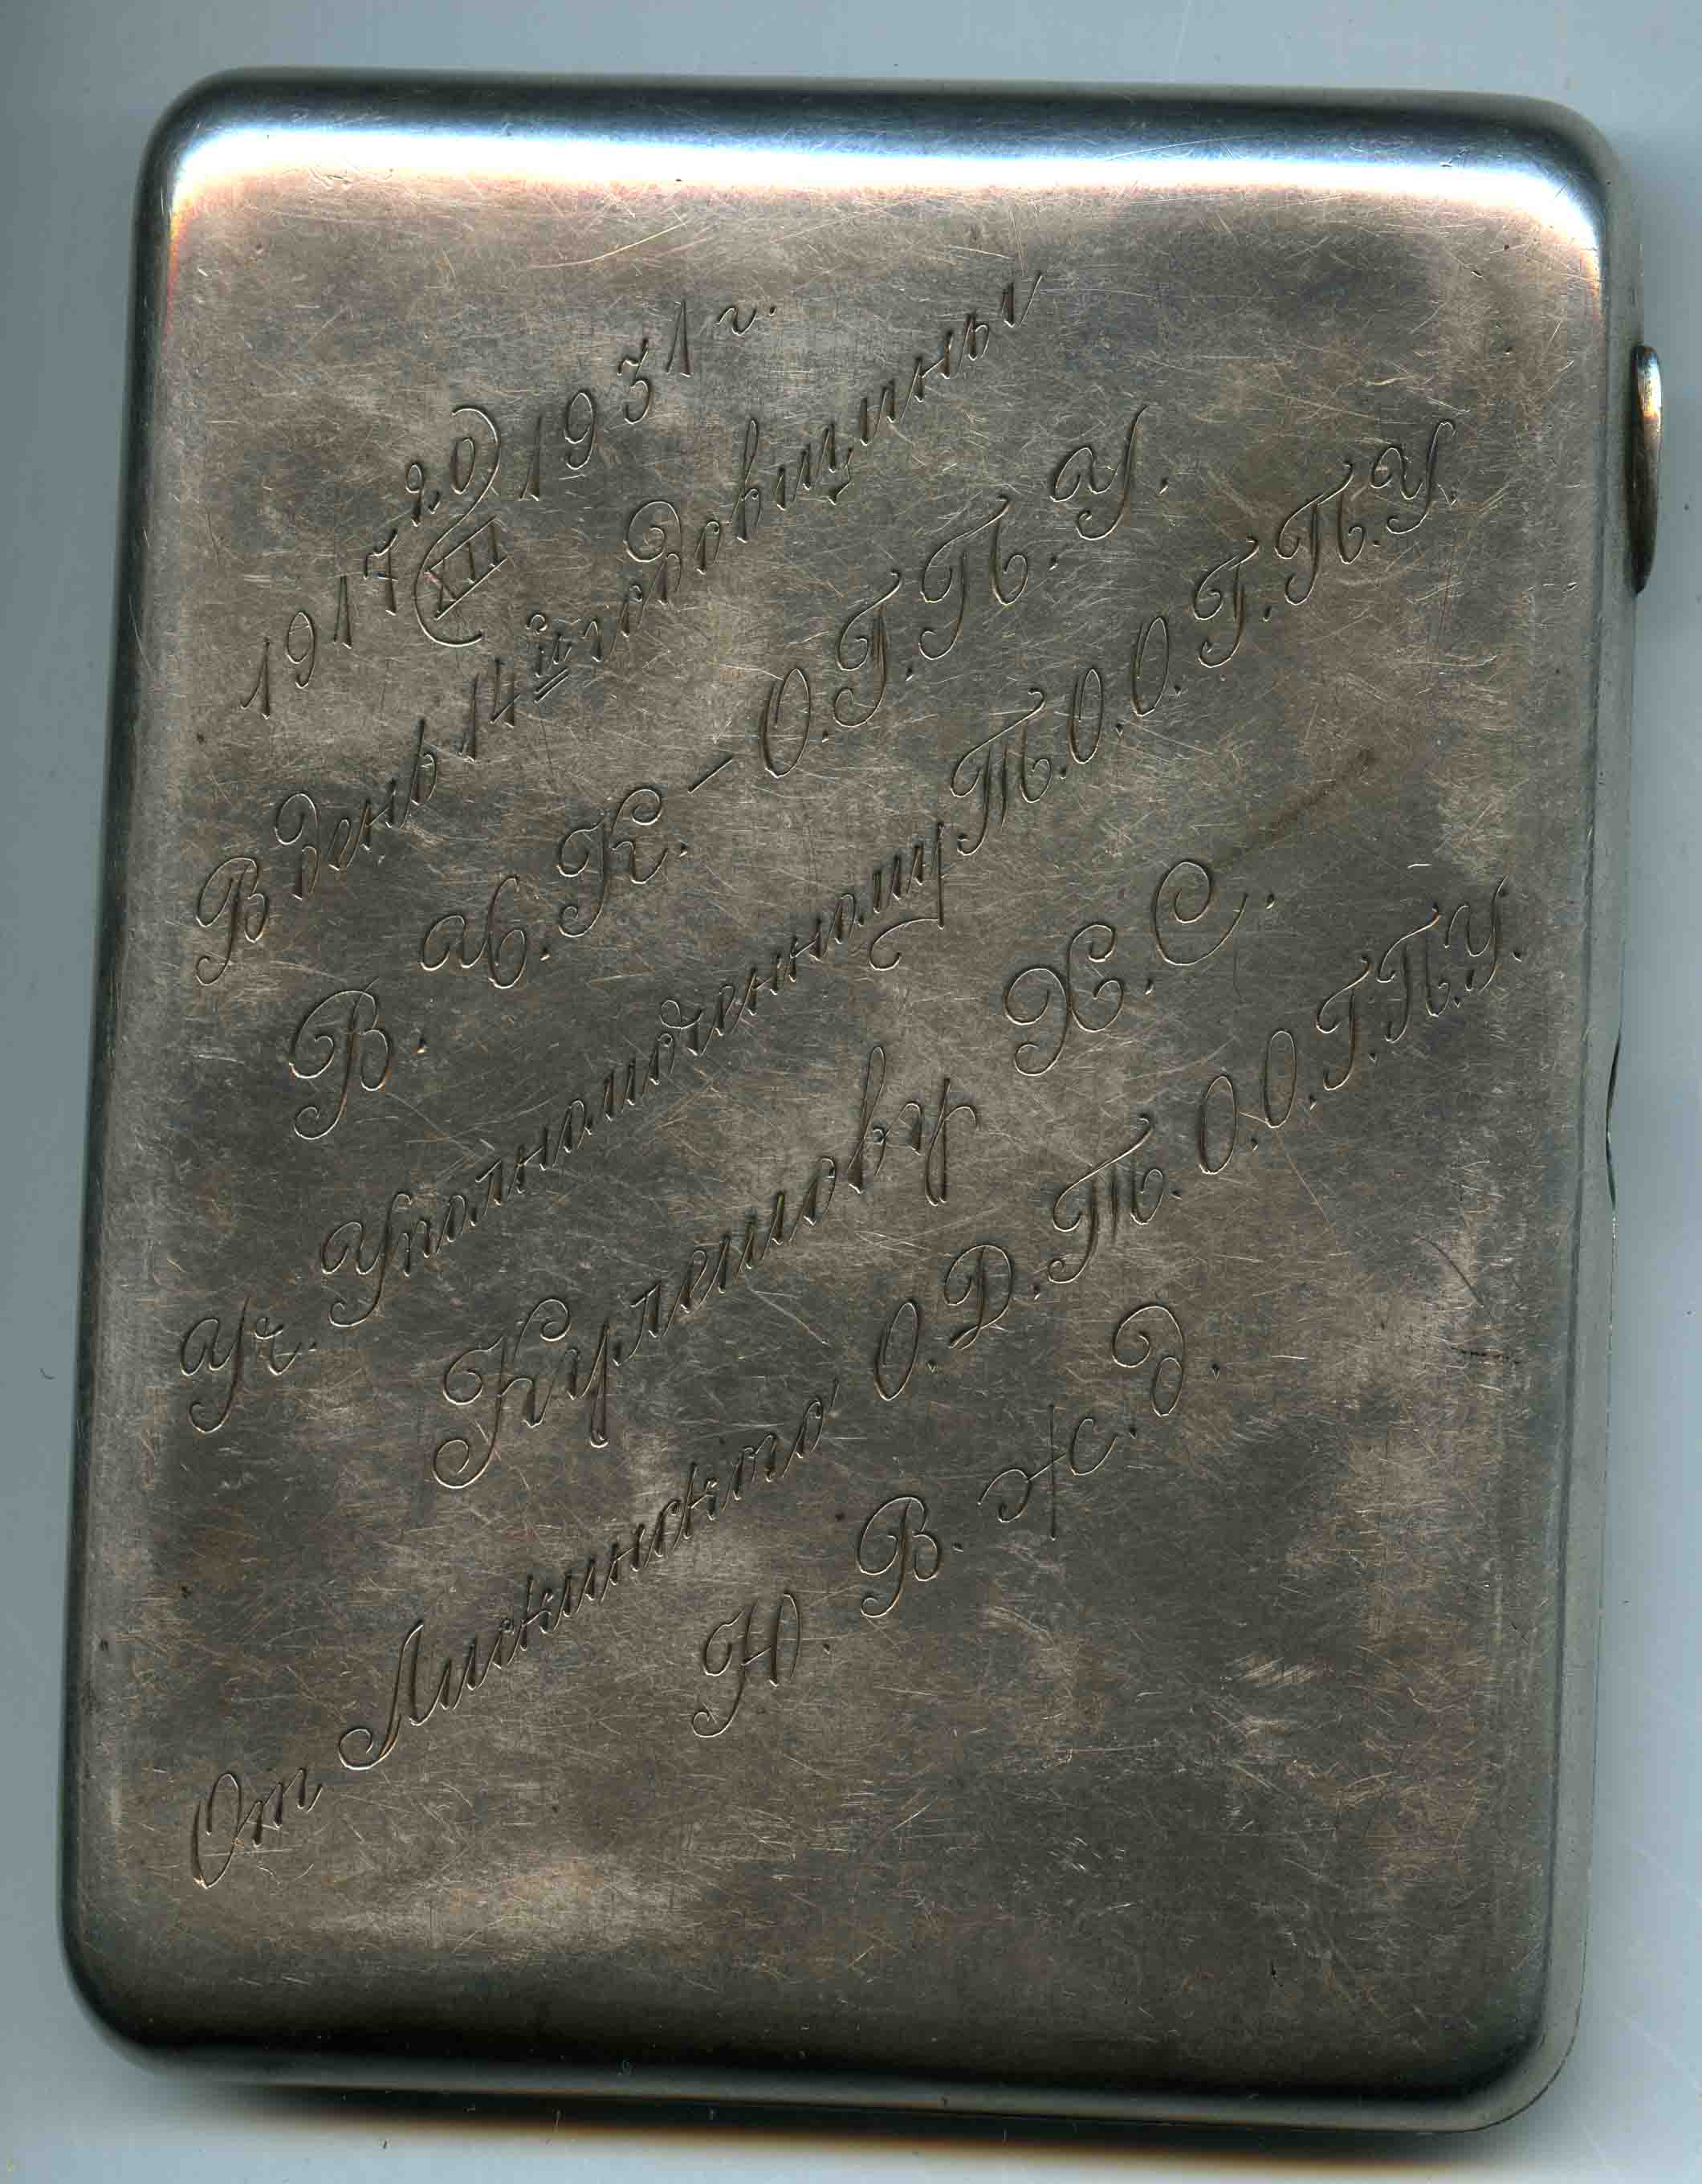 1917 20/XII 1931 г.
В день 14й годовщины
В. Ч. К. – О. Г. П. У.
Уч. Уполномоченному Т. О. О. Г. П. У.
Кулешову Х. С.
От Лискинского О. Д. Т. О. О. Г. П. У.
Ю. В. ж. д.